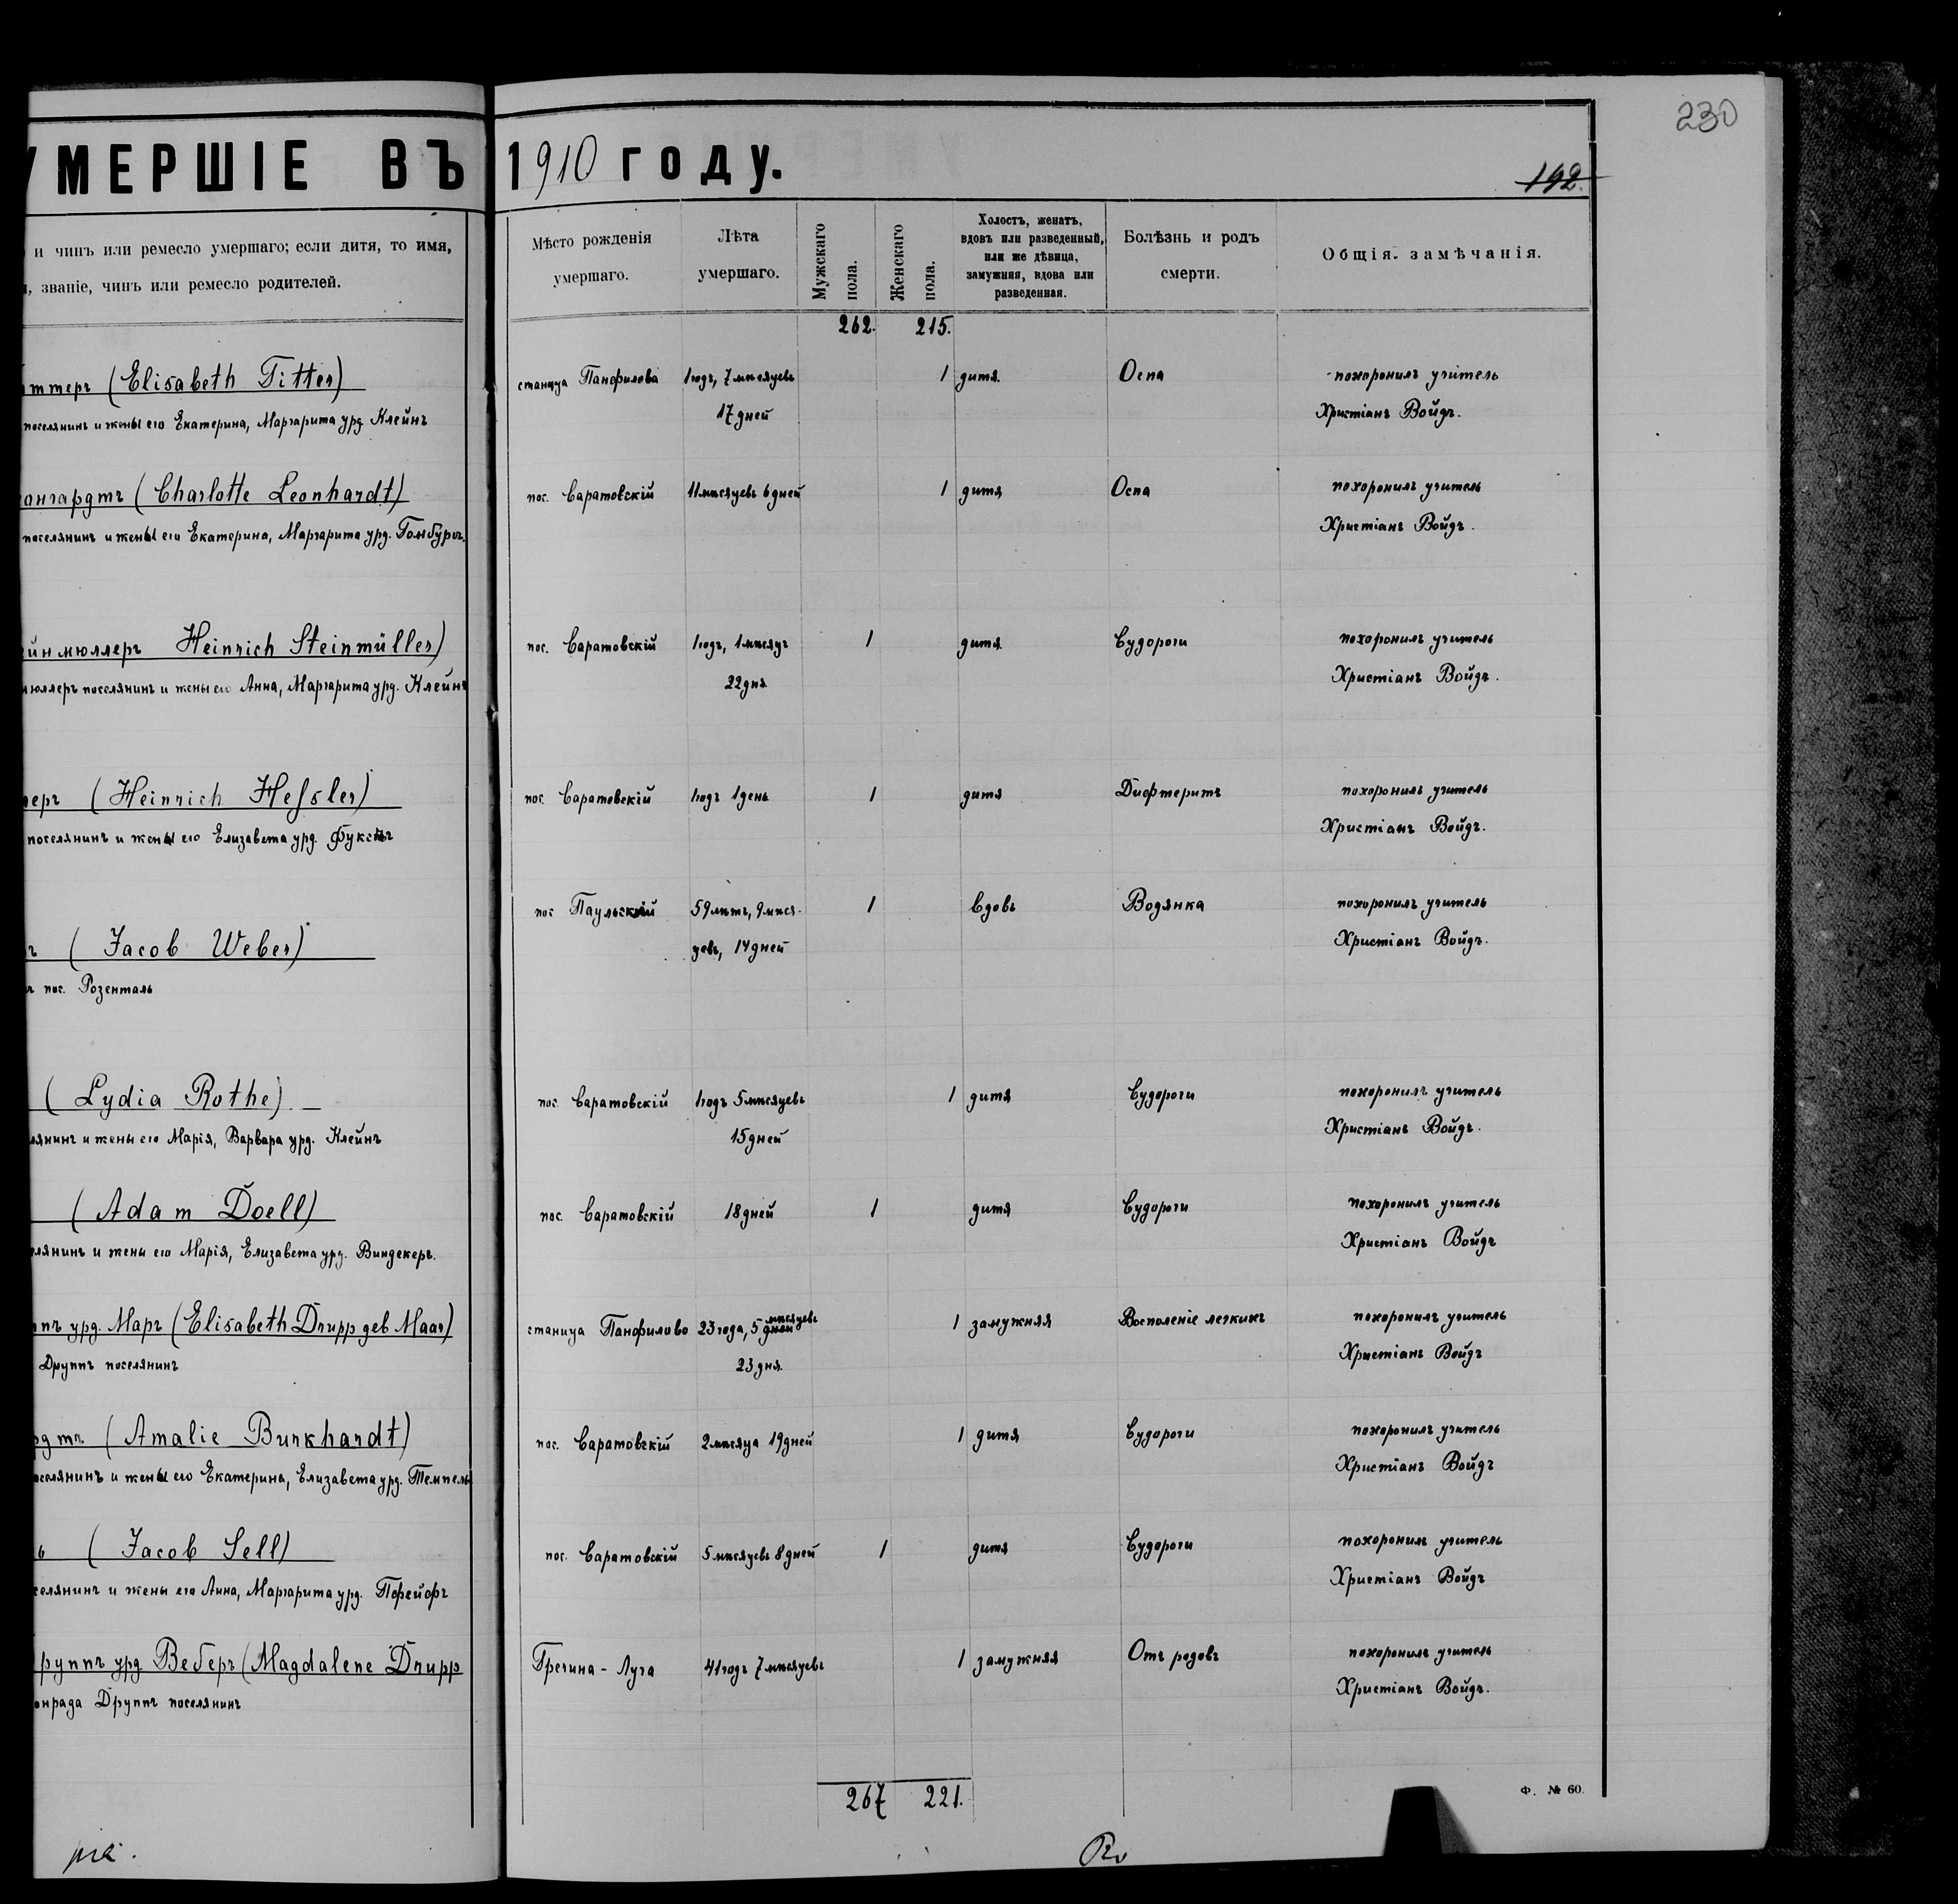 230
УМЕРШІЕ ВЪ 1910 году.
192.
и чинъ или ремесло умершаго; если дитя, то имя,
званіе, чинъ или ремесло родителей.
Мѣсто рожденія умершаго.
Лѣта умершаго.
Мужскаго пола.
Женскаго пола.
Холостъ, женатъ,
вдовъ или разведенный,
или же дѣвица,
замужняя, вдова или
разведенная.
Болѣзнь и родъ смерти.
Общія замѣчанія.
262. 215.
ттеръ (Elisabeth Titter) станица Панфилова 1 годъ, 7 мѣсяцевъ 1 дитя. Оспа похоронилъ учитель
поселянинъ и жены его Екатерина, Маргарита урд. Клейнъ 17 дней Христіанъ Войдъ.
онгардтъ (Charlotte Leonhardt) пос. Саратовскій 11 мѣсяцевъ 6 дней 1 дитя Оспа похоронилъ учитель
поселянинъ и жены его Екатерина, Маргарита урд. Гомбургъ. Христіанъ Войдъ.
йнмюллеръ Heinrich Steinmüller) пос. Саратовскій 1 годъ, 1 мѣсяцъ 1 дитя Судороги похоронилъ учитель
мюллеръ поселянинъ и жены его Анна, Маргарита урд. Клейнъ 22 дня Христіанъ Войдъ.
леръ (Heinrich Heſsler) пос. Саратовскій 1 годъ 1 день 1 дитя Дифтеритъ похоронилъ учитель
поселянинъ и жены его Елизавета урд. Христіанъ Войдъ.
пос Паульскій 59 лѣтъ, 9 мѣся- 1 Вдовъ Водянка похоронилъ учитель
ръ (Jacob Weber) цевъ, 14 дней Христіанъ Войдъ.
пос. Розенталь
(Lydia Rothe) пос. Саратовскій 1 годъ 5 мѣсяцевъ 1 дитя Судороги похоронилъ учитель
лянинъ и жены его Марія, Варвара урд. Клейнъ 15 дней Христіанъ Войдъ.
(Adam Doell) пос. Саратовскій 18 дней 1 дитя Судороги похоронилъ учитель
елянинъ и жены его Марія, Елизавета урд. Виндекеръ. Христіанъ Войдъ
ппъ урд. Маръ (Elisabeth Drupp geb Maar) станица Панфилово 23 года, 5 дней мѣсяцевъ 1 замужняя Восполеніе легкихъ похоронилъ учитель
Друппъ поселянинъ 23 дня. Христіанъ Войдъ
рдтъ (Amalie Burkhardt) пос. Саратовскій 2 мѣсяца 19 дней 1 дитя Судороги похоронилъ учитель
оселянинъ и жены его Екатерина, Елизавета урд. Темпель Христіанъ Войдъ
ь (Jacob Sell) пос. Саратовскій 5 мѣсяцевъ 8 дней 1 дитя Судороги похоронилъ учитель
селянинъ и жены его Анна, Маргарита урд. Пфейфъ Христіанъ Войдъ
руппъ урд Веберъ (Magdalene Drupp Гречина-Луга 41 годъ 7 мѣсяцевъ 1 замужняя Отъ родовъ похоронилъ учитель
онрада Друппъ поселянинъ Христіанъ Войдъ.
267 221.
Ф. № 60.